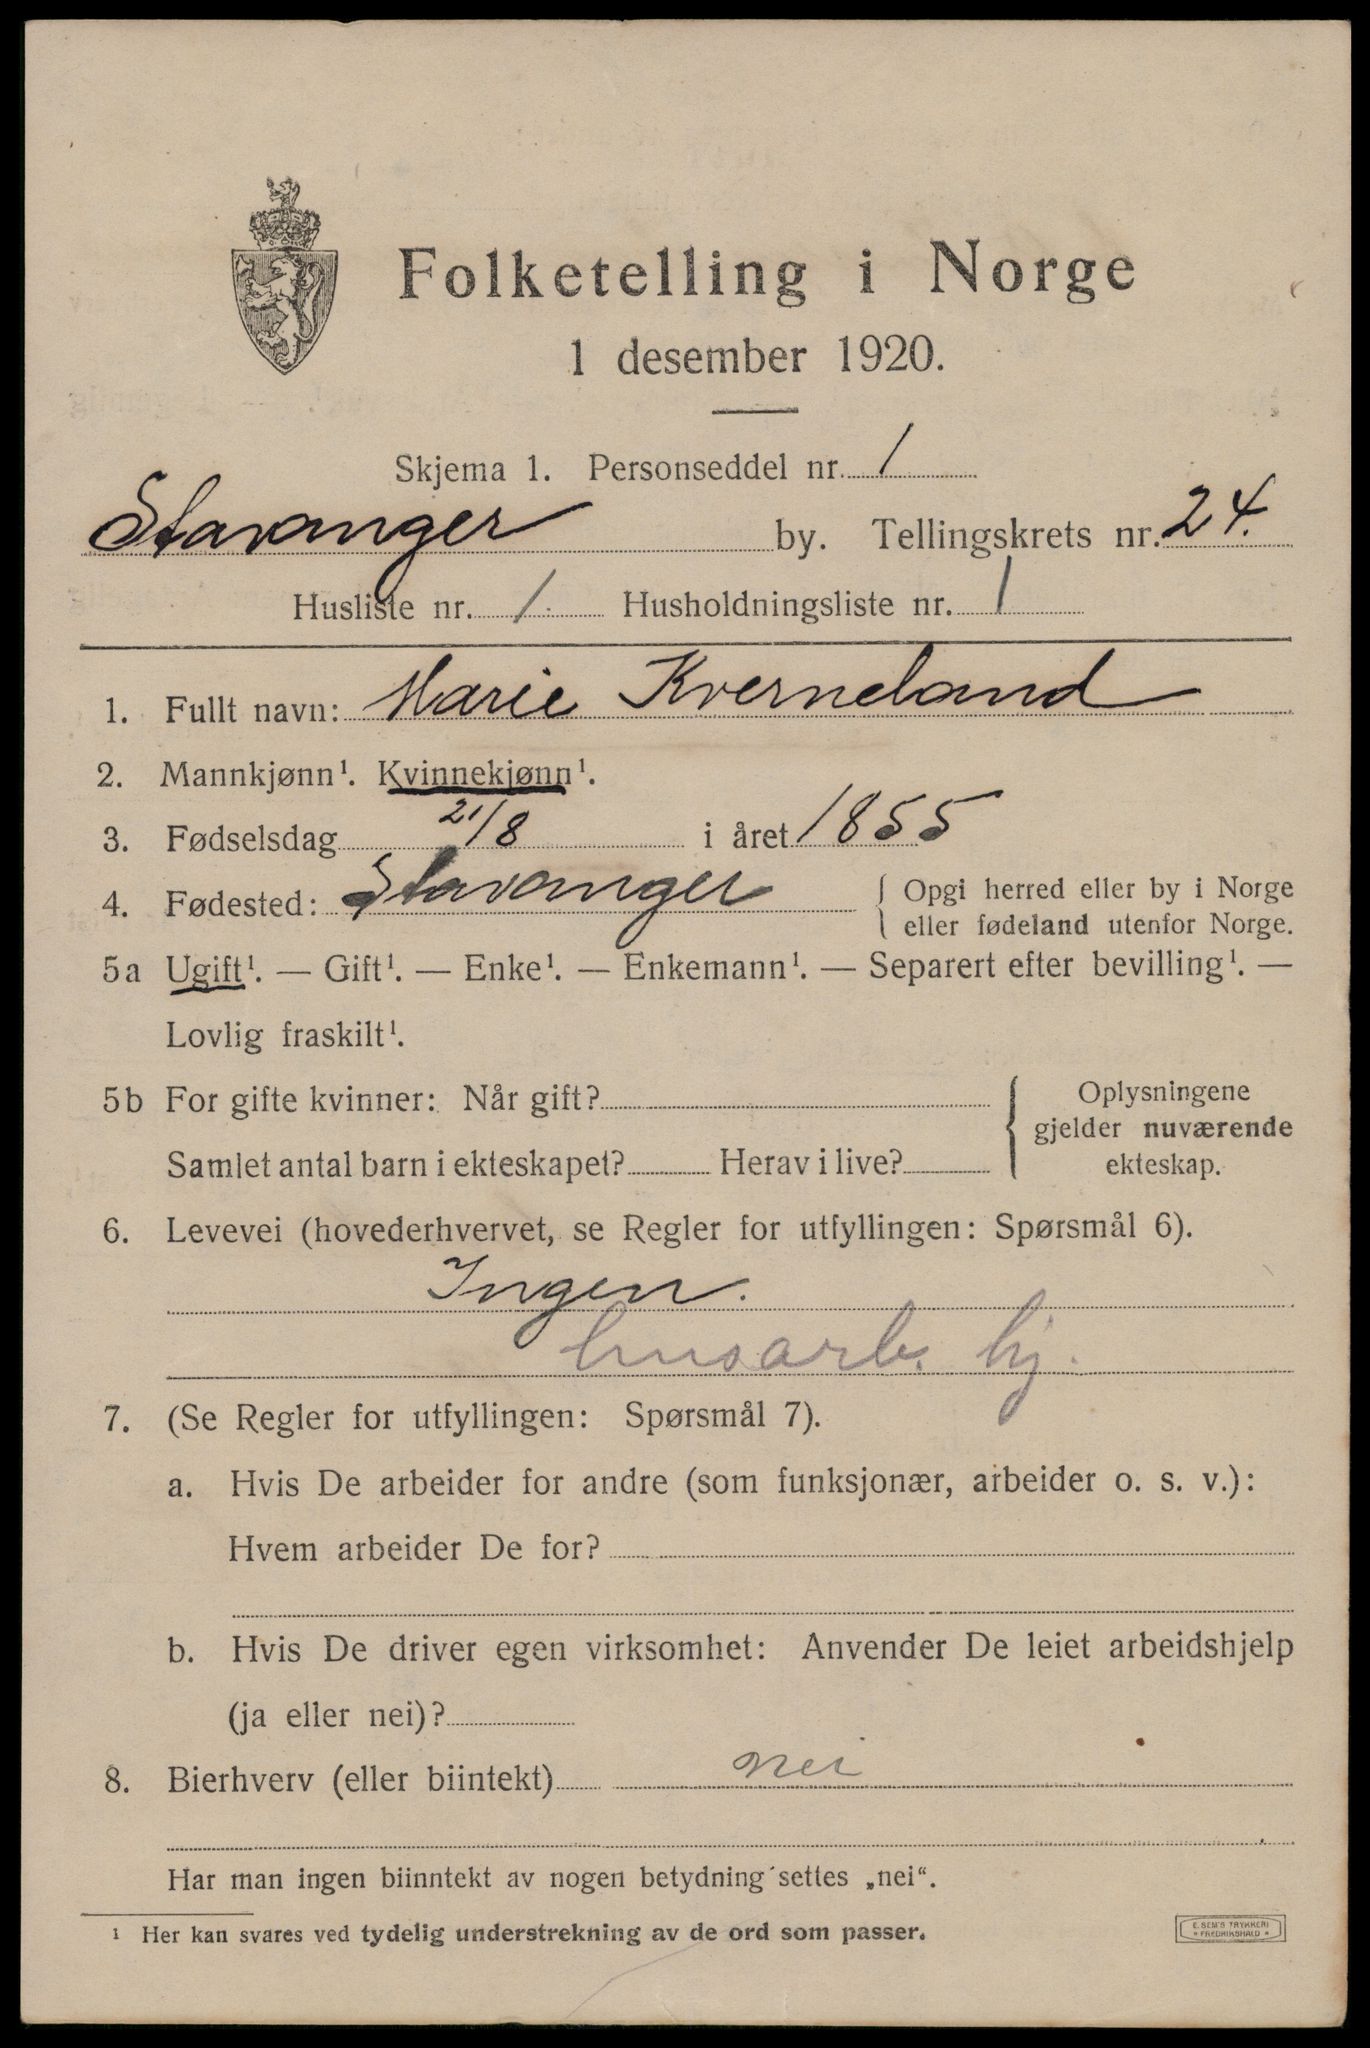 Folketelling i Norge
1 desember 1920.
Skjema 1. Personseddel nr. 1
Stavanger by. Tellingskrets nr. 24.
Husliste nr. 1. Husholdningsliste nr. 1
1. Fullt navn: Marie Kverneland
2. Mannkjønn¹. Kvinnekjønn¹.
3. Fødselsdag 21/8 i året 1855
4. Fødested: Stavanger { Opgi herred eller by i Norge
eller fødeland utenfor Norge.
5a Ugift¹. — Gift¹. — Enke¹. — Enkemann¹. — Separert efter bevilling¹. —
Lovlig fraskilt¹.
5b For gifte kvinner: Når gift?
Samlet antal barn i ekteskapet? Herav i live?
{ Oplysningene
gjelder nuværende
ekteskap.
6. Levevei (hovederhvervet, se Regler for utfyllingen: Spørsmål 6).
Ingen.
husarb. hj.
7. (Se Regler for utfyllingen: Spørsmål 7).
a. Hvis De arbeider for andre (som funksjonær, arbeider o. s. v.):
Hvem arbeider De for?
b. Hvis De driver egen virksomhet: Anvender De leiet arbeidshjelp
(ja eller nei)?
8. Bierhverv (eller biintekt) nei
Har man ingen biinntekt av nogen betydning settes „nei“.
¹ Her kan svares ved tydelig understrekning av de ord som passer.
E. SEM'S TRYKKERI
* FREDRIKSHALD *